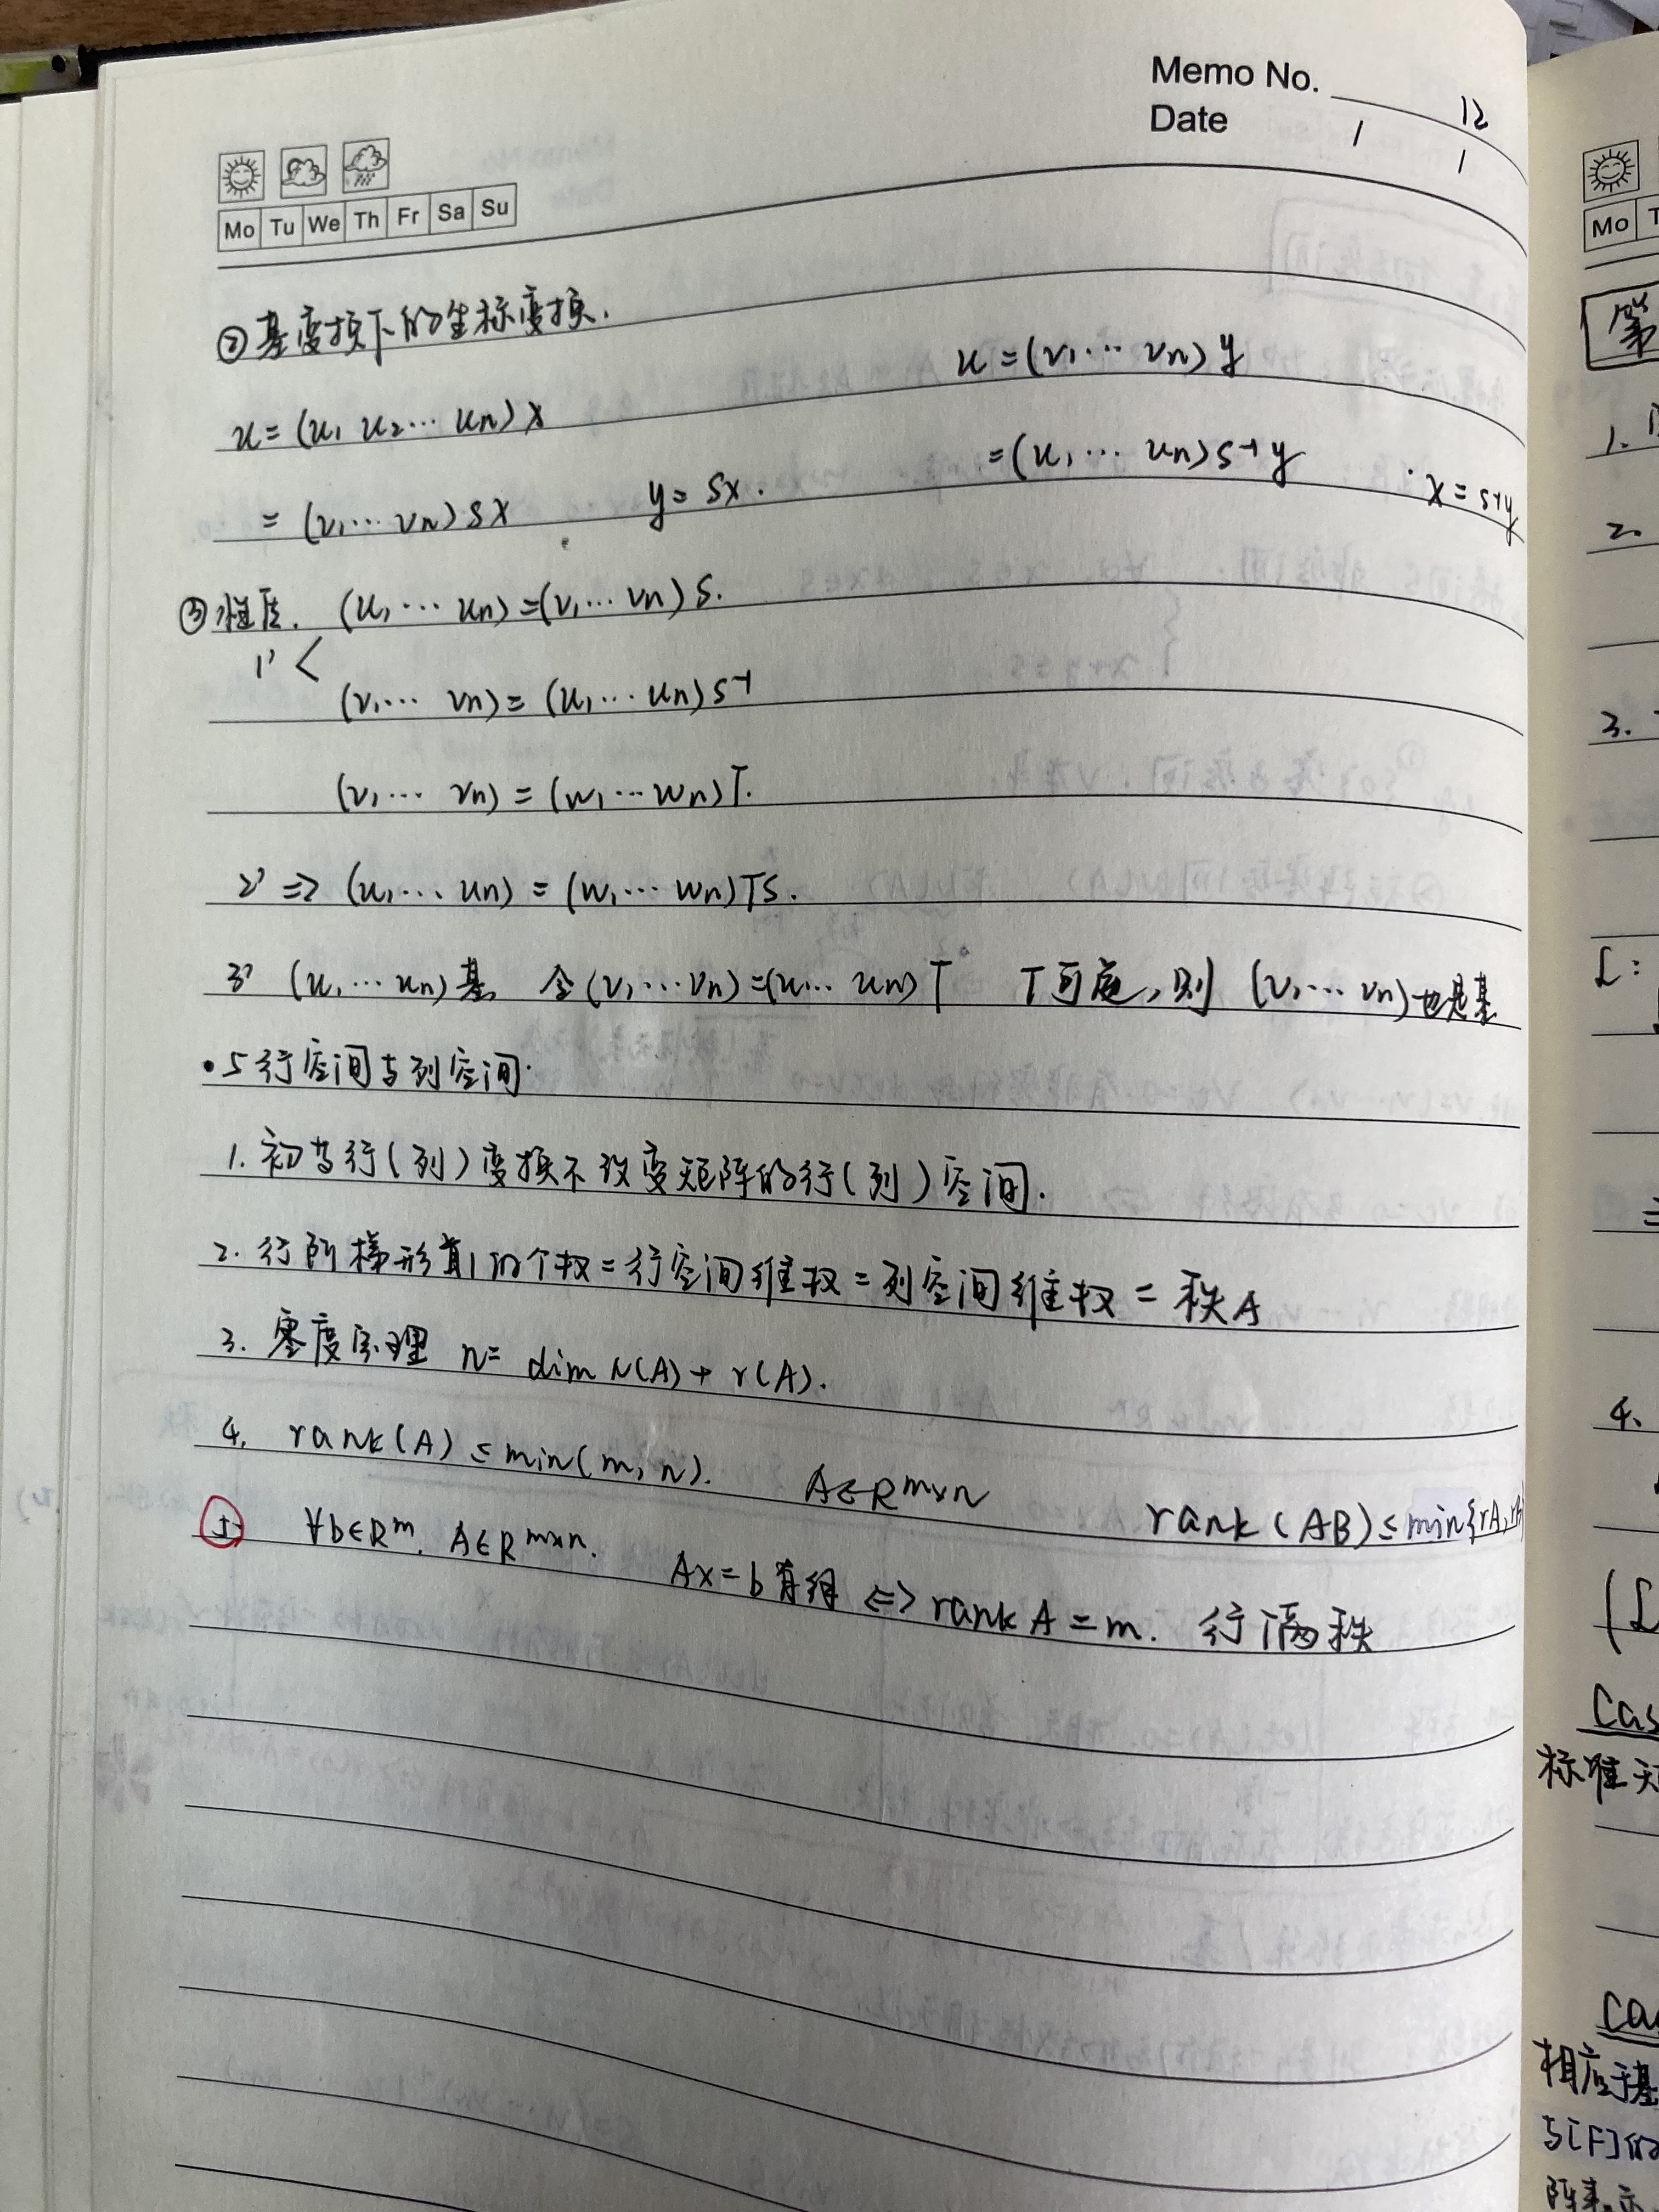 Memo No. 12
Date / /
Mo Tu We Th Fr Sa Su
②基变换下的坐标变换.
u=(u₁ u₂… uₙ)x
u=(v₁… vₙ)y
=(v₁… vₙ)Sx y=Sx.
=(u₁… uₙ)S⁻¹y x=S⁻¹y
③性质. (u₁… uₙ)=(v₁… vₙ)S.
1' <
(v₁… vₙ)=(u₁… uₙ)S⁻¹
(v₁… vₙ)=(w₁…wₙ)T.
2' ⇒ (u₁… uₙ)=(w₁… wₙ)TS.
3' (u₁… uₙ)基 令(v₁…vₙ)=(u₁… uₙ)T T可逆,则 (v₁… vₙ)也是基
•5行空间与列空间.
1. 初等行(列)变换不改变矩阵的行(列)空间.
2. 行阶梯形首1的个数=行空间维数=列空间维数=秩A
3. 零度定理 n= dim N(A)+r(A).
4. rank(A)≤min(m,n). A∈Rᵐˣⁿ rank(AB)≤min{rA,rB}
5. ∀b∈Rᵐ. A∈Rᵐˣⁿ. Ax=b有解⇔rankA=m. 行满秩
Mo
第
1.
2.
3.
L:
=
4.
(L
Cas
标准
Ca
相应于基
与[F]的
阵表示